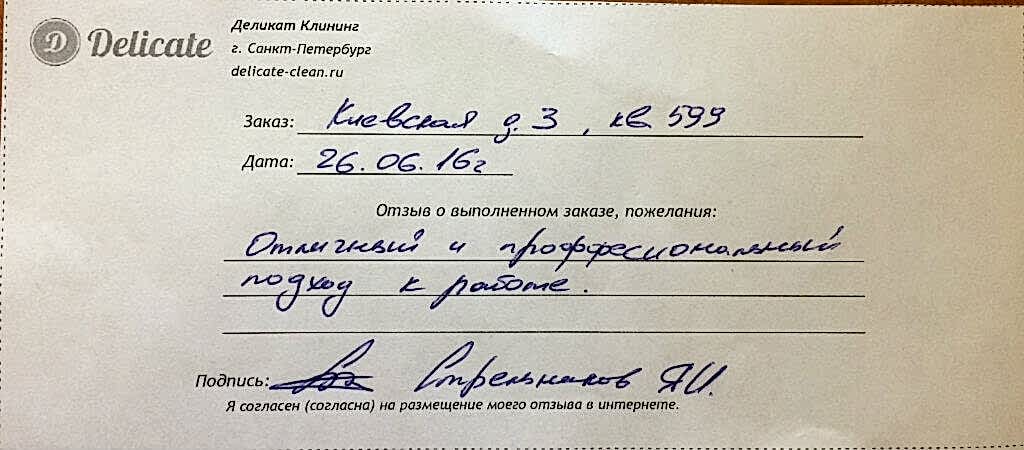 D Delicate
Деликат Клининг
г. Санкт-Петербург
delicate-clean.ru
Заказ: Киевская д. 3, кв 599
Дата: 26.06.16г
Отзыв о выполненном заказе, пожелания:
Отличный и проффесиональный
подход к работе.
Подпись: Стрельников Я.И.
Я согласен (согласна) на размещение моего отзыва в интернете.